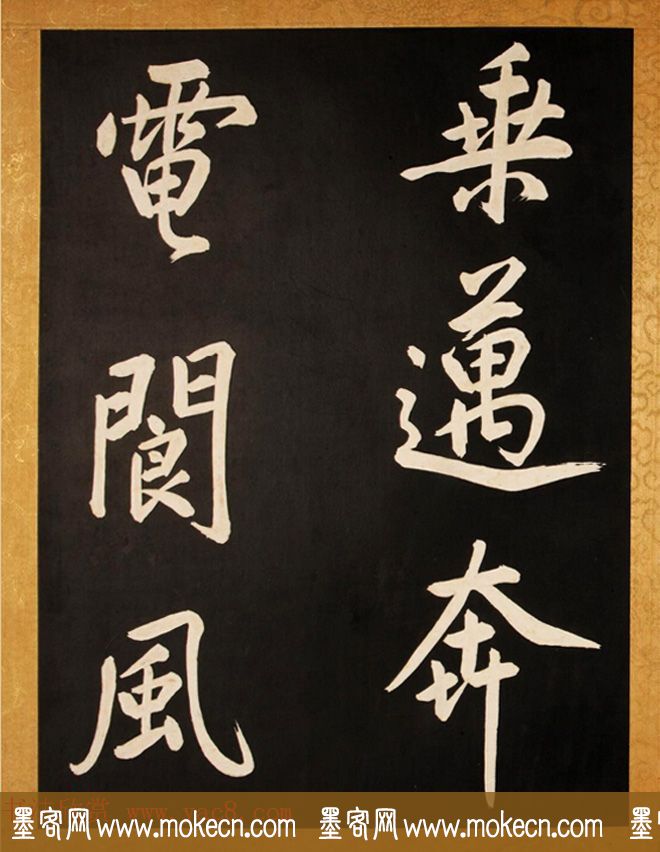 乗邁奔
電閬風
墨客网 www.mokecn.com 墨客网 www.mokecn.com